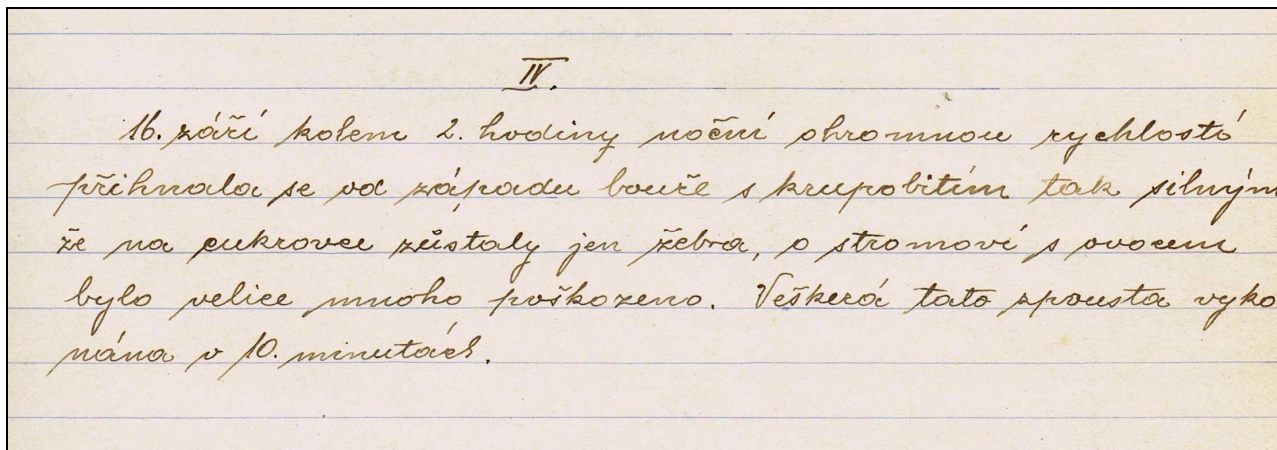 IV.
16. září kolem 2. hodiny noční ohromnou rychlostí
přihnala se od západu bouře s krupobitím tak silným
že na cukrovce zůstaly jen žebra, o stromoví s ovocem
bylo velice mnoho poškozeno. Veškerá tato spousta vyko
nána v 10. minutách.